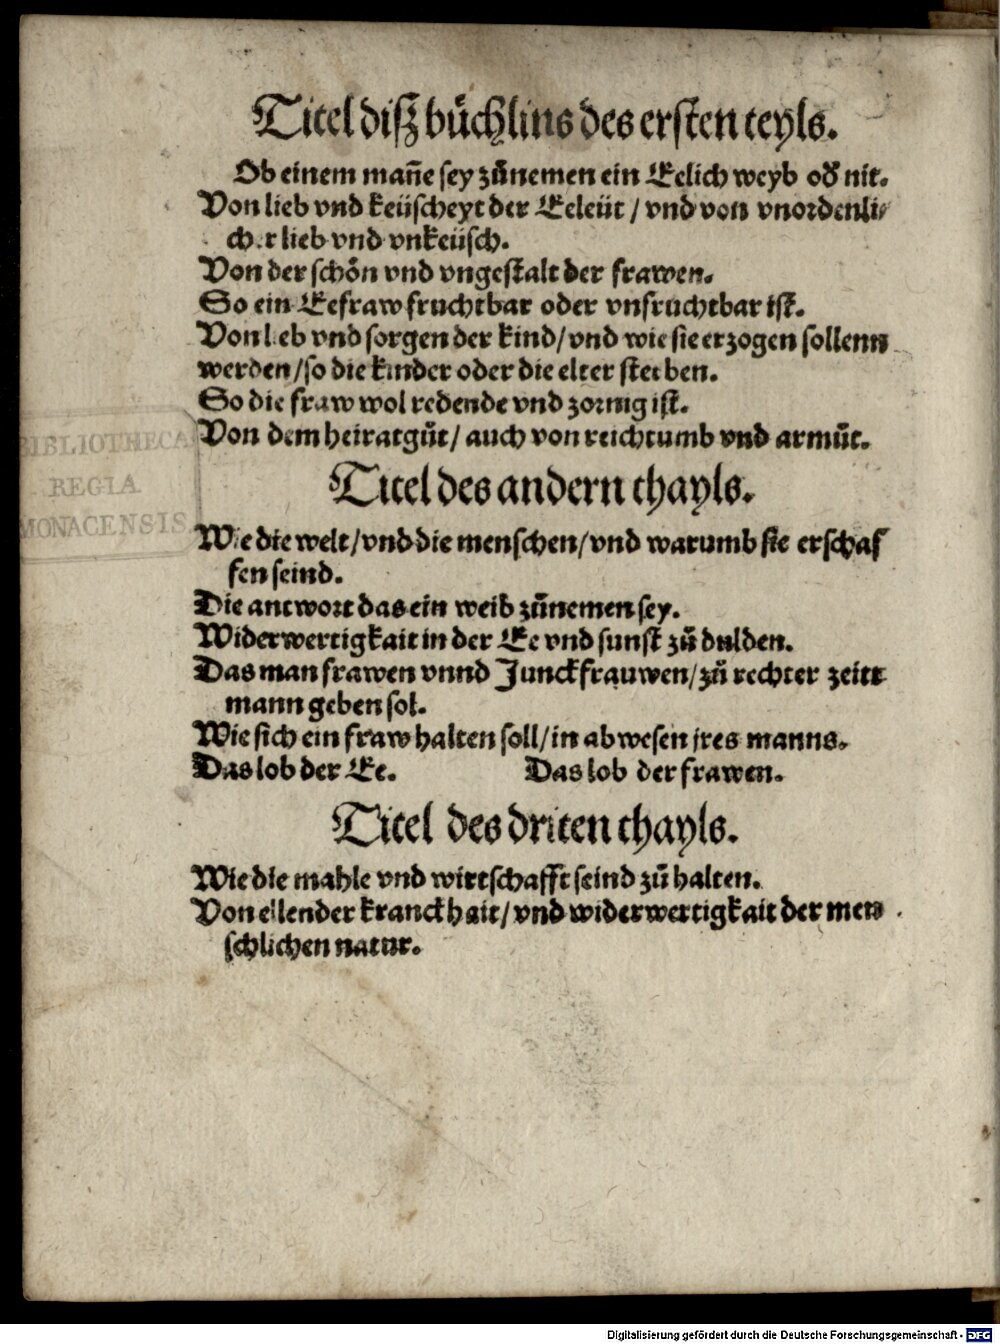 Titel diſz bůchlins des erſten teyls.
Ob einem mañe ſey zůnemen ein Eelich weyb oď nit.
Von lieb vnd keüſcheyt der Eeleüt / vnd von vnordenli-
cher lieb vnd vnkeüſch.
Von der ſchoͤn vnd vngeſtalt der frawen.
So ein Eefraw fruchtbar oder vnfruchtbar iſt.
Von lieb vnd ſorgen der kind/ vnd wie ſie erzogen ſollenn
werden /ſo die kinder oder die elter ſterben.
So die fraw wol redende vnd zornig iſt.
Von dem heiratgůt/ auch von reichtumb vnd armůt.
Titel des andern thayls.
Wie die welt/vnd die menſchen/vnd warumb ſie erſchaf
fen ſeind.
Die antwort das ein weib zůnemen ſey.
Widerwertigkait in der Ee vnd ſunſt zů dulden.
Das man frawen vnnd Junckfrauwen/ zů rechter zeitt
mann geben ſol.
Wie ſich ein fraw halten ſoll/in abweſen jres manns.
Das lob der Ee. Das lob der frawen.
Titel des driten thayls.
Wie die mahle vnd wirtſchafft ſeind zů halten.
Von ellender kranckhait/ vnd widerwertigkait der men
ſchlichen natur.
BIBLIOTHECA
REGIA
MONACENSIS
Digitalisierung gefördert durch die Deutsche Forschungsgemeinschaft - DFG